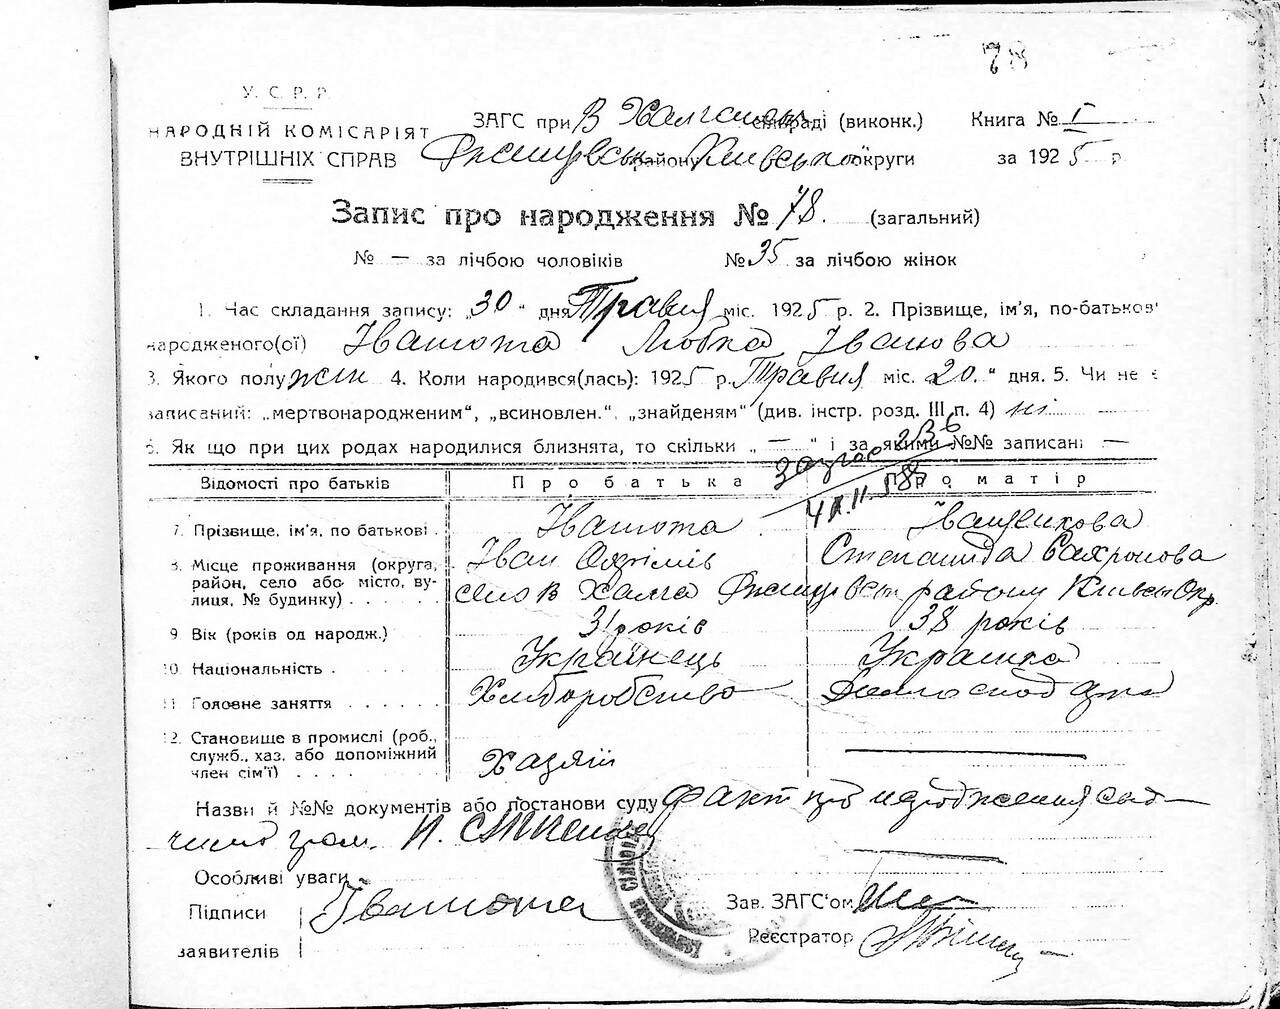 78
У. С. Р. Р.
НАРОДНІЙ КОМІСАРІЯТ
ВНУТРІШНІХ СПРАВ
ЗАГС при В Халчанськ сільраді (виконк.) Книга № I
району Київської округи за 1925 р.
Запис про народження № 78. (загальний)
№ — за лічбою чоловіків № 35 за лічбою жінок
1. Час складання запису: „30" дня Травня міс. 1925 р. 2. Прізвище, ім'я, по-батьков
народженого(ої) Івашота Любка Іванова
3. Якого полу жін 4. Коли народився(лась): 1925 р. Травня міс. 20." дня. 5. Чи не є
записаний: „мертвонародженим", „всиновлен.", „знайденям" (див. інстр. розд. III п. 4) ні
6. Як що при цих родах народилися близнята, то скільки „ — " і за якими №№ записані —
Відомості про батьків Про батька Про матір
7. Прізвище, ім'я, по батькові Івашота
Іван Степанида
8. Місце проживання (округа, район, село або місто, вулиця, № будинку) село В Халча району Київськ Окр.
9. Вік (років од народж.) 31 років 38 років
10. Національність Українець Українка
11. Головне заняття Хліборобство Домогосподарка
12. Становище в промислі (роб., служб., хаз. або допоміжний член сім'ї) Хазяїн —
Назви й №№ документів або постанови суду факт про народження
гром.
Особливі уваги
Підписи Івашота Зав. ЗАГС'ом
заявителів Реєстратор